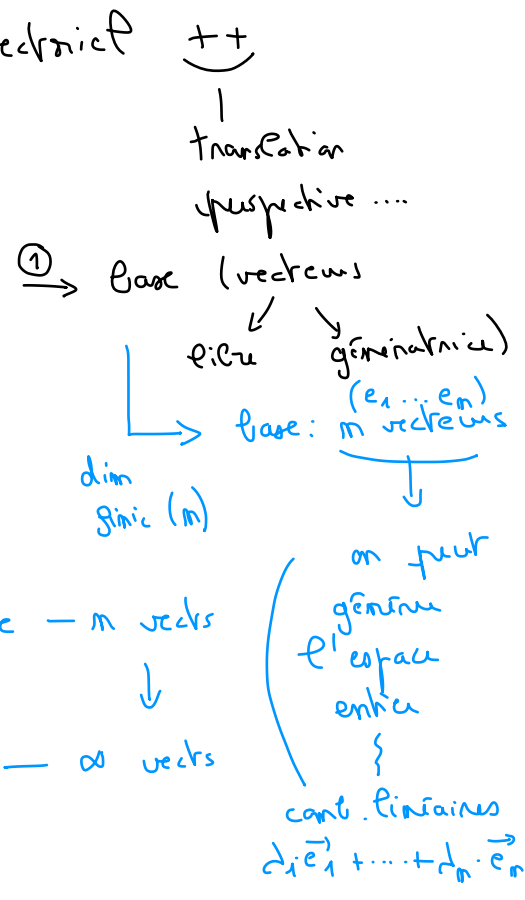 ectoriel ++
translation
perspective ....
① base (vecteurs
libre génératrice)
(e₁ ... eₙ)
base : n vecteurs
dim
finie (n)
on peut
générer
l'espace
entier
e — n vects
— ∞ vects
comb. linéaires
λ₁·e₁ + .... + λₙ·eₙ